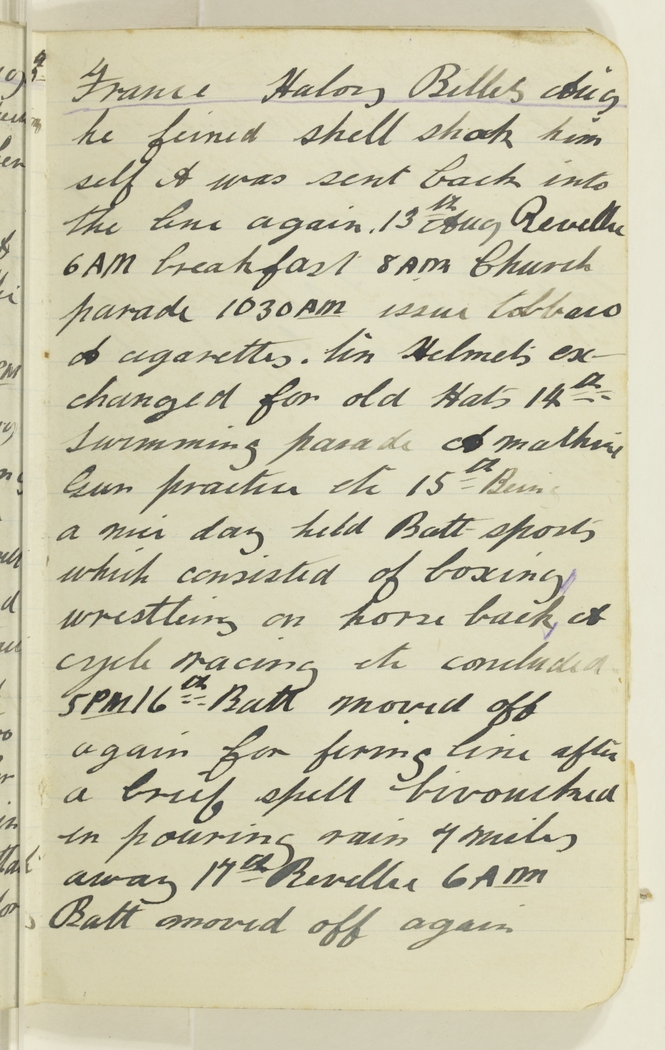 France Haloy Billets Aug
he feined shell shock him
self & was sent back into
the line again. 13th Aug Reveille
6AM breakfast 8AM Church
parade 1030AM issue tobbaco
& cigarettes. tin Helmets ex-
changed for old Hats 14th
swimming parade & mathine
Gun practice etc 15th Being
a nice day held Batt sports
which consisted of boxing
wrestling on horse back, &
cycle racing etc concluded
5PM 16th Batt moved off
again for firing line after
a brief spell bivoucked
in pouring rain 7 miles
away 17th Reveille 6AM
Batt moved off again